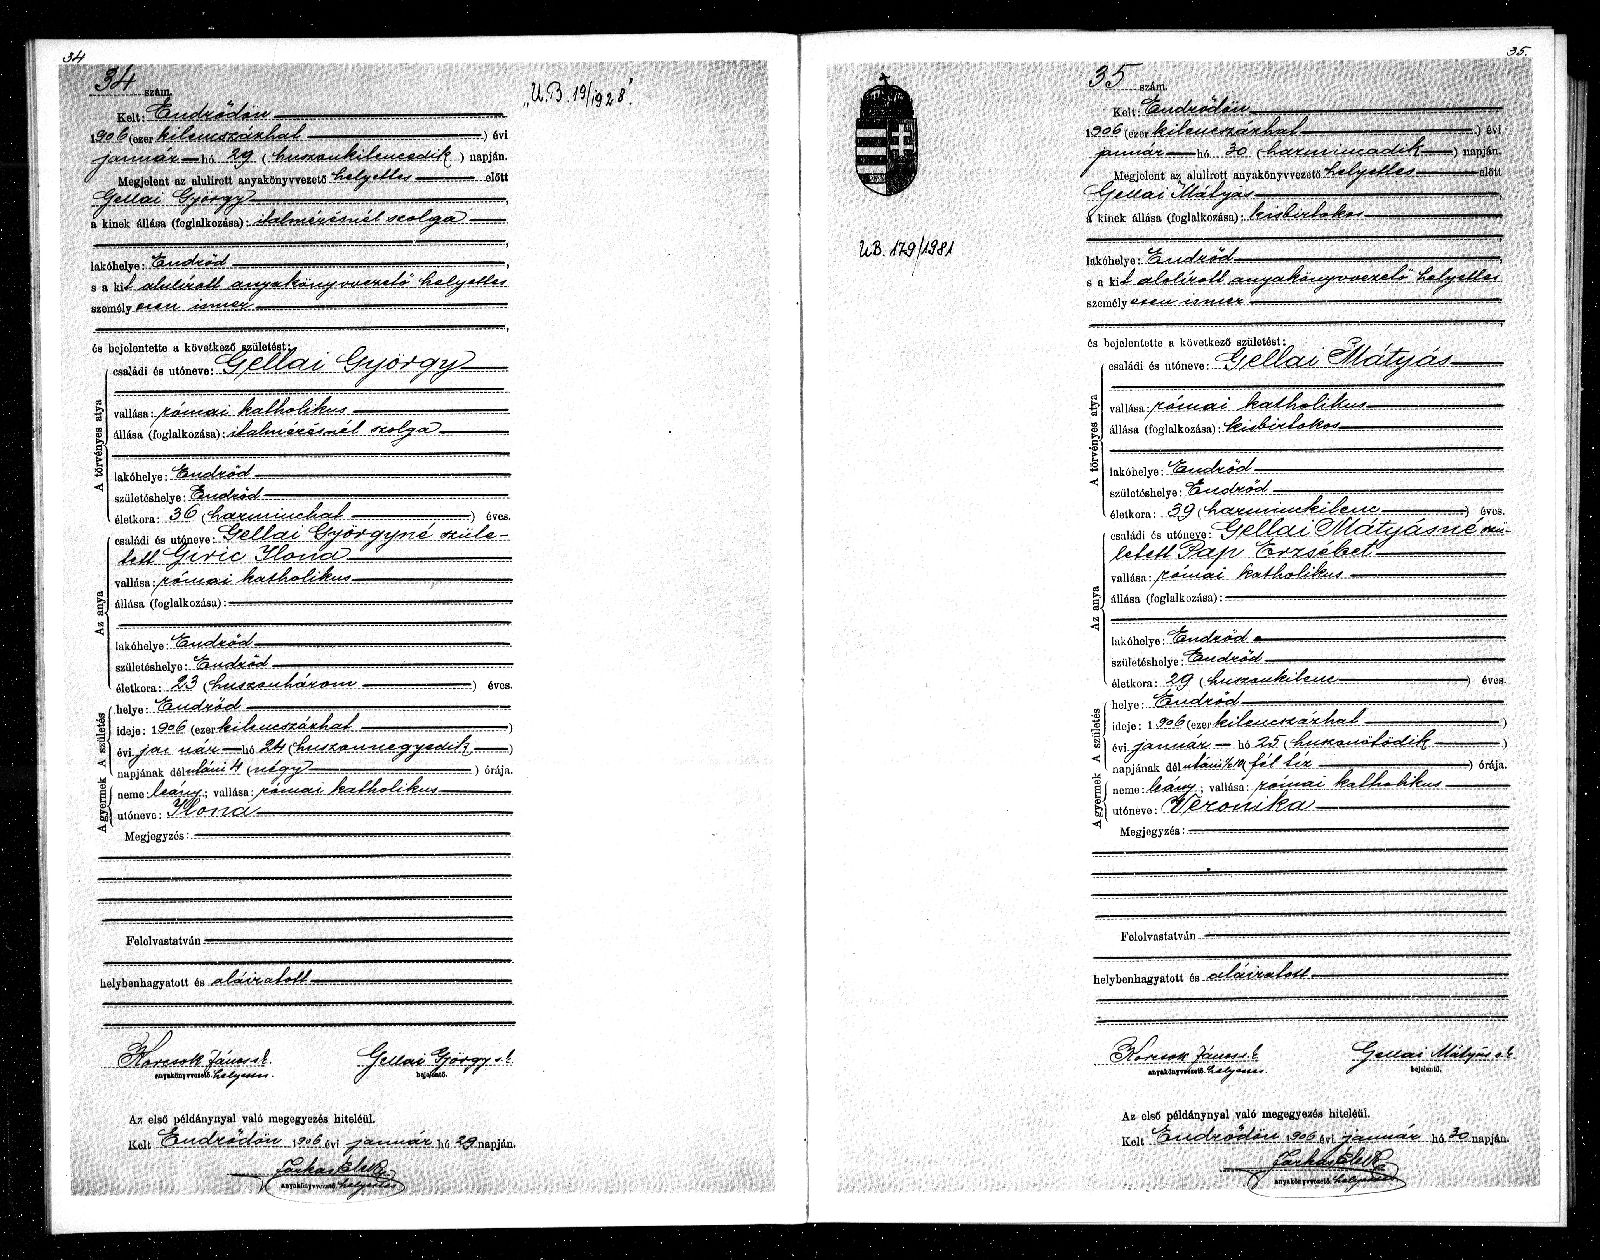 34
34 szám.
„U.B. 19/1928."
Kelt: Endrődön
1906 (ezer kilencszázhat) évi
január hó 29 (huszonkilencedik) napján.
Megjelent az alulirott anyakönyvvezető helyettes előtt
Gellai György,
a kinek állása (foglalkozása): italmérésnél szolga
lakóhelye: Endrőd,
s a kit alulírott anyakönyvvezető helyettes
személyesen ismer
és bejelentette a következő születést:
A törvényes atya
családi és utóneve: Gellai György
vallása: római katholikus
állása (foglalkozása): italmérésnél szolga
lakóhelye: Endrőd
születéshelye: Endrőd
életkora: 36 (harminchat) éves.
Az anya
családi és utóneve: Gellai Györgyné szüle-
tett Giric Ilona
vallása: római katholikus
állása (foglalkozása):
lakóhelye: Endrőd
születéshelye: Endrőd
életkora: 23 (huszonhárom) éves.
A születés
helye: Endrőd
ideje: 1906 (ezer kilencszázhat)
évi január hó 24 (huszonnegyedik)
napjának délutáni 4 (négy) órája.
A gyermek
neme: leány; vallása: római katholikus
utóneve: Ilona
Megjegyzés:
Felolvastatván
helybenhagyatott és aláiratott
Korcsok János s.k. Gellai György s.k.
anyakönyvvezető helyettes. bejelentő.
Az első példánynyal való megegyezés hiteléül.
Kelt Endrődön 1906 évi január hó 29 napján.
Farkas Elek
anyakönyvvezető helyettes
35.
35 szám.
U.B. 179/1981
Kelt: Endrődön
1906 (ezer kilencszázhat) évi
január hó 30 (harmincadik) napján.
Megjelent az alulirott anyakönyvvezető helyettes előtt
Gellai Mátyás
a kinek állása (foglalkozása): kisbirtokos
lakóhelye: Endrőd
s a kit alolírott anyakönyvvezető helyettes
személyesen ismer
és bejelentette a következő születést:
A törvényes atya
családi és utóneve: Gellai Mátyás
vallása: római katholikus
állása (foglalkozása): kisbirtokos
lakóhelye: Endrőd
születéshelye: Endrőd
életkora: 39 (harminckilenc) éves.
Az anya
családi és utóneve: Gellai Mátyásné szü-
letett Pap Erzsébet
vallása: római katholikus
állása (foglalkozása):
lakóhelye: Endrőd
születéshelye: Endrőd
életkora: 29 (huszonkilenc) éves.
A születés
helye: Endrőd
ideje: 1906 (ezer kilencszázhat)
évi január hó 25 (huszonötödik)
napjának délutáni ½10 (fél tíz) órája.
A gyermek
neme: leány; vallása: római katholikus
utóneve: Veronika
Megjegyzés:
Felolvastatván
helybenhagyatott és aláiratott
Korcsok János s.k. Gellai Mátyás s.k.
anyakönyvvezető helyettes. bejelentő.
Az első példánynyal való megegyezés hiteléül.
Kelt Endrődön 1906 évi január hó 30 napján.
Farkas Elek
anyakönyvvezető helyettes